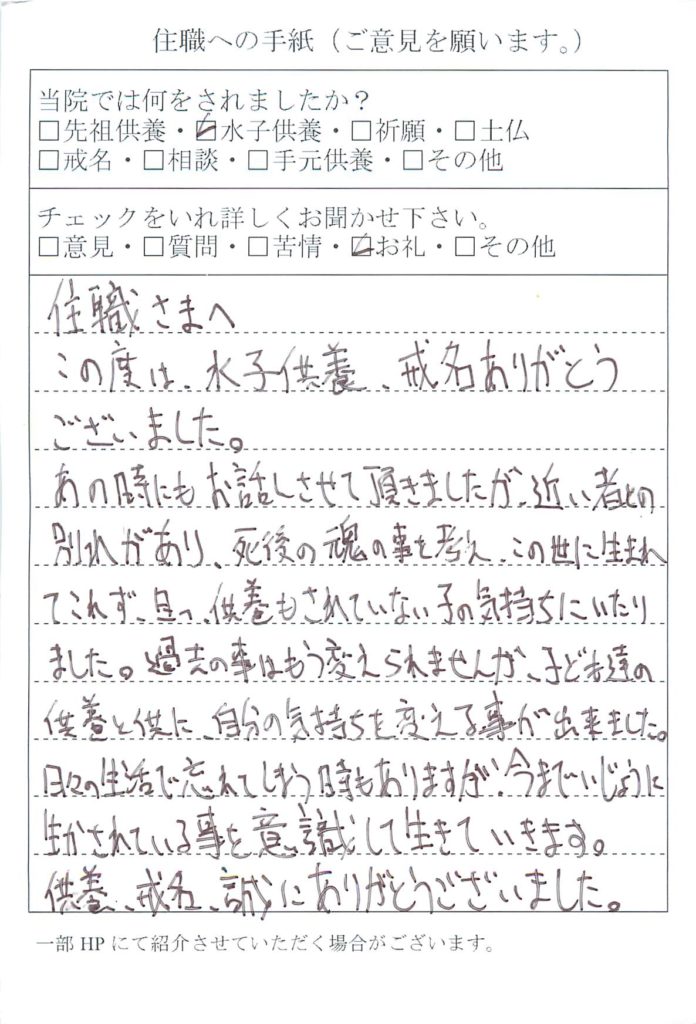 住職への手紙（ご意見を願います。）
当院では何をされましたか？
□先祖供養・☑水子供養・□祈願・□土仏
□戒名・□相談・□手元供養・□その他
チェックをいれ詳しくお聞かせ下さい。
□意見・□質問・□苦情・☑お礼・□その他
住職さまへ
この度は、水子供養、戒名ありがとう
ございました。
あの時にもお話しさせて頂きましたが、近い者との
別れがあり、死後の魂の事を考え、この世に生まれ
てこれず、且つ、供養もされていない子の気持ちにいたり
ました。過去の事はもう変えられませんが、子ども達の
供養と供に、自分の気持ちを変える事が出来ました。
日々の生活で忘れてしまう時もありますが、今までいじょうに
生かされている事を意識して生きていきます。
供養、戒名、誠にありがとうございました。
一部HPにて紹介させていただく場合がございます。